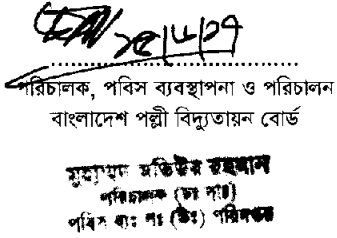 ১৫/৮/১৭
পরিচালক, পবিস ব্যবস্থাপনা ও পরিচালন
বাংলাদেশ পল্লী বিদ্যুতায়ন বোর্ড
মুহাম্মদ মতিউর রহমান
পরিচালক (চঃ দাঃ)
পবিস ব্যঃ পঃ (উঃ) পরিদপ্তর